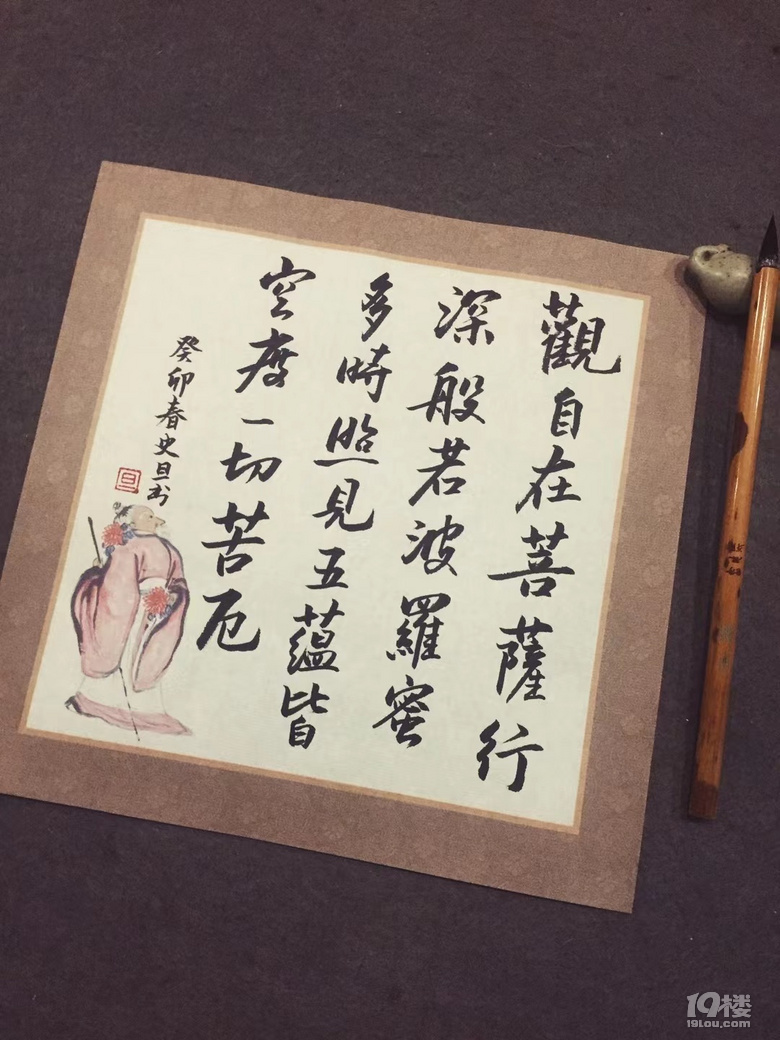 觀自在菩薩行
深般若波羅蜜
多時照見五蘊皆
空度一切苦厄
癸卯春史旦书
旦
19楼
19lou.com